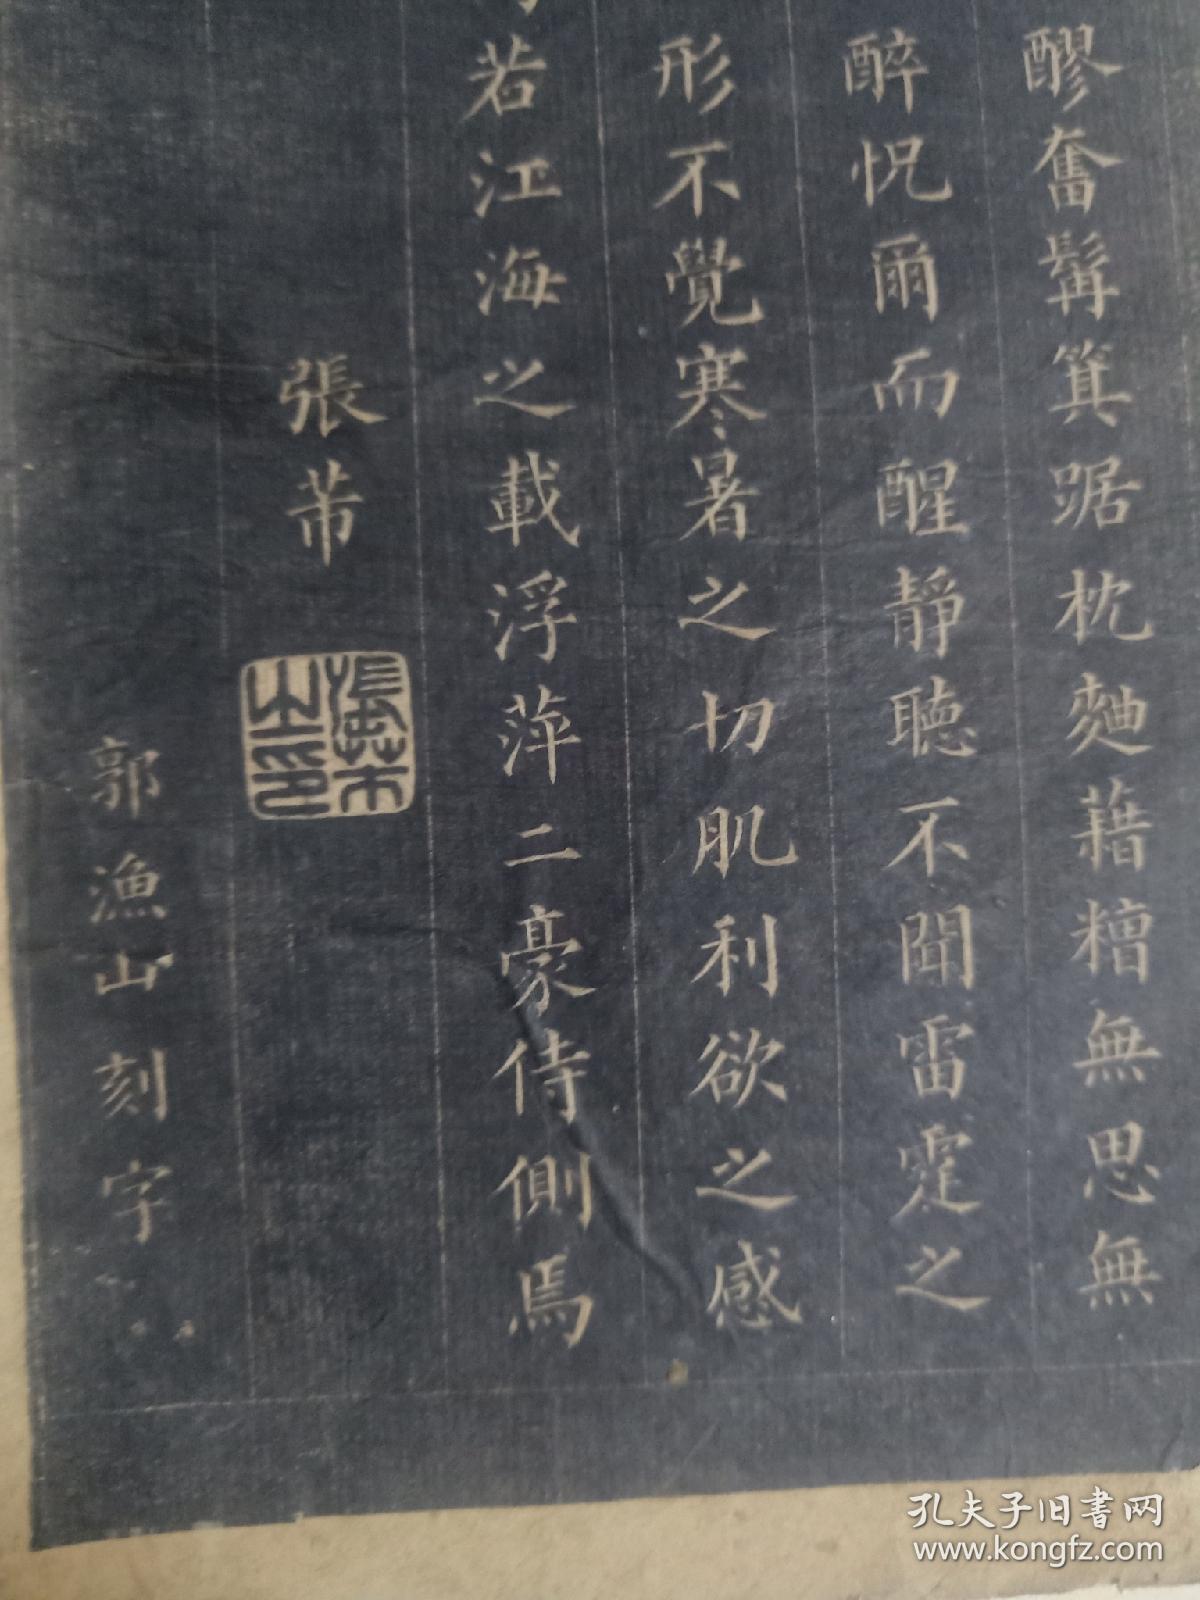 醪奮髯箕踞枕麹藉糟無思無
醉怳爾而醒靜聽不聞雷霆之
形不覺寒暑之切肌利欲之感
若江海之載浮萍二豪侍側焉
張芾
張芾之印
郭漁山刻字
孔夫子旧书网
www.kongfz.com